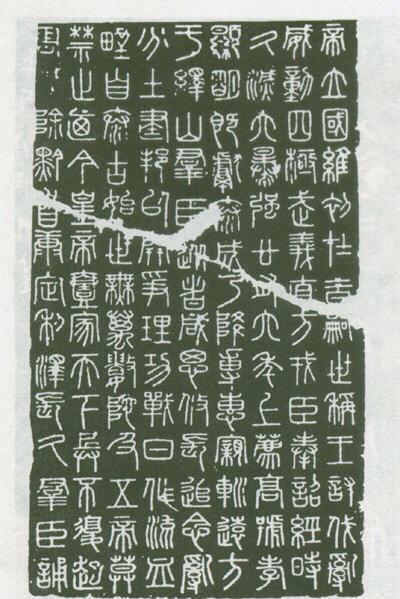 帝立國維初在昔嗣世稱王討伐亂
威動四極武義直方戎臣奉詔經時
久滅六暴強廿有六年上薦高號孝
顯明既獻泰成乃降專惠親巡遠方
于繹山羣臣從者咸思攸長追念亂
分土建邦以開爭理功戰日作流血
野自泰古始世無萬數陀及五帝莫
禁止迺今皇帝壹家天下兵不復起
害除黔首康定利澤長久羣臣誦